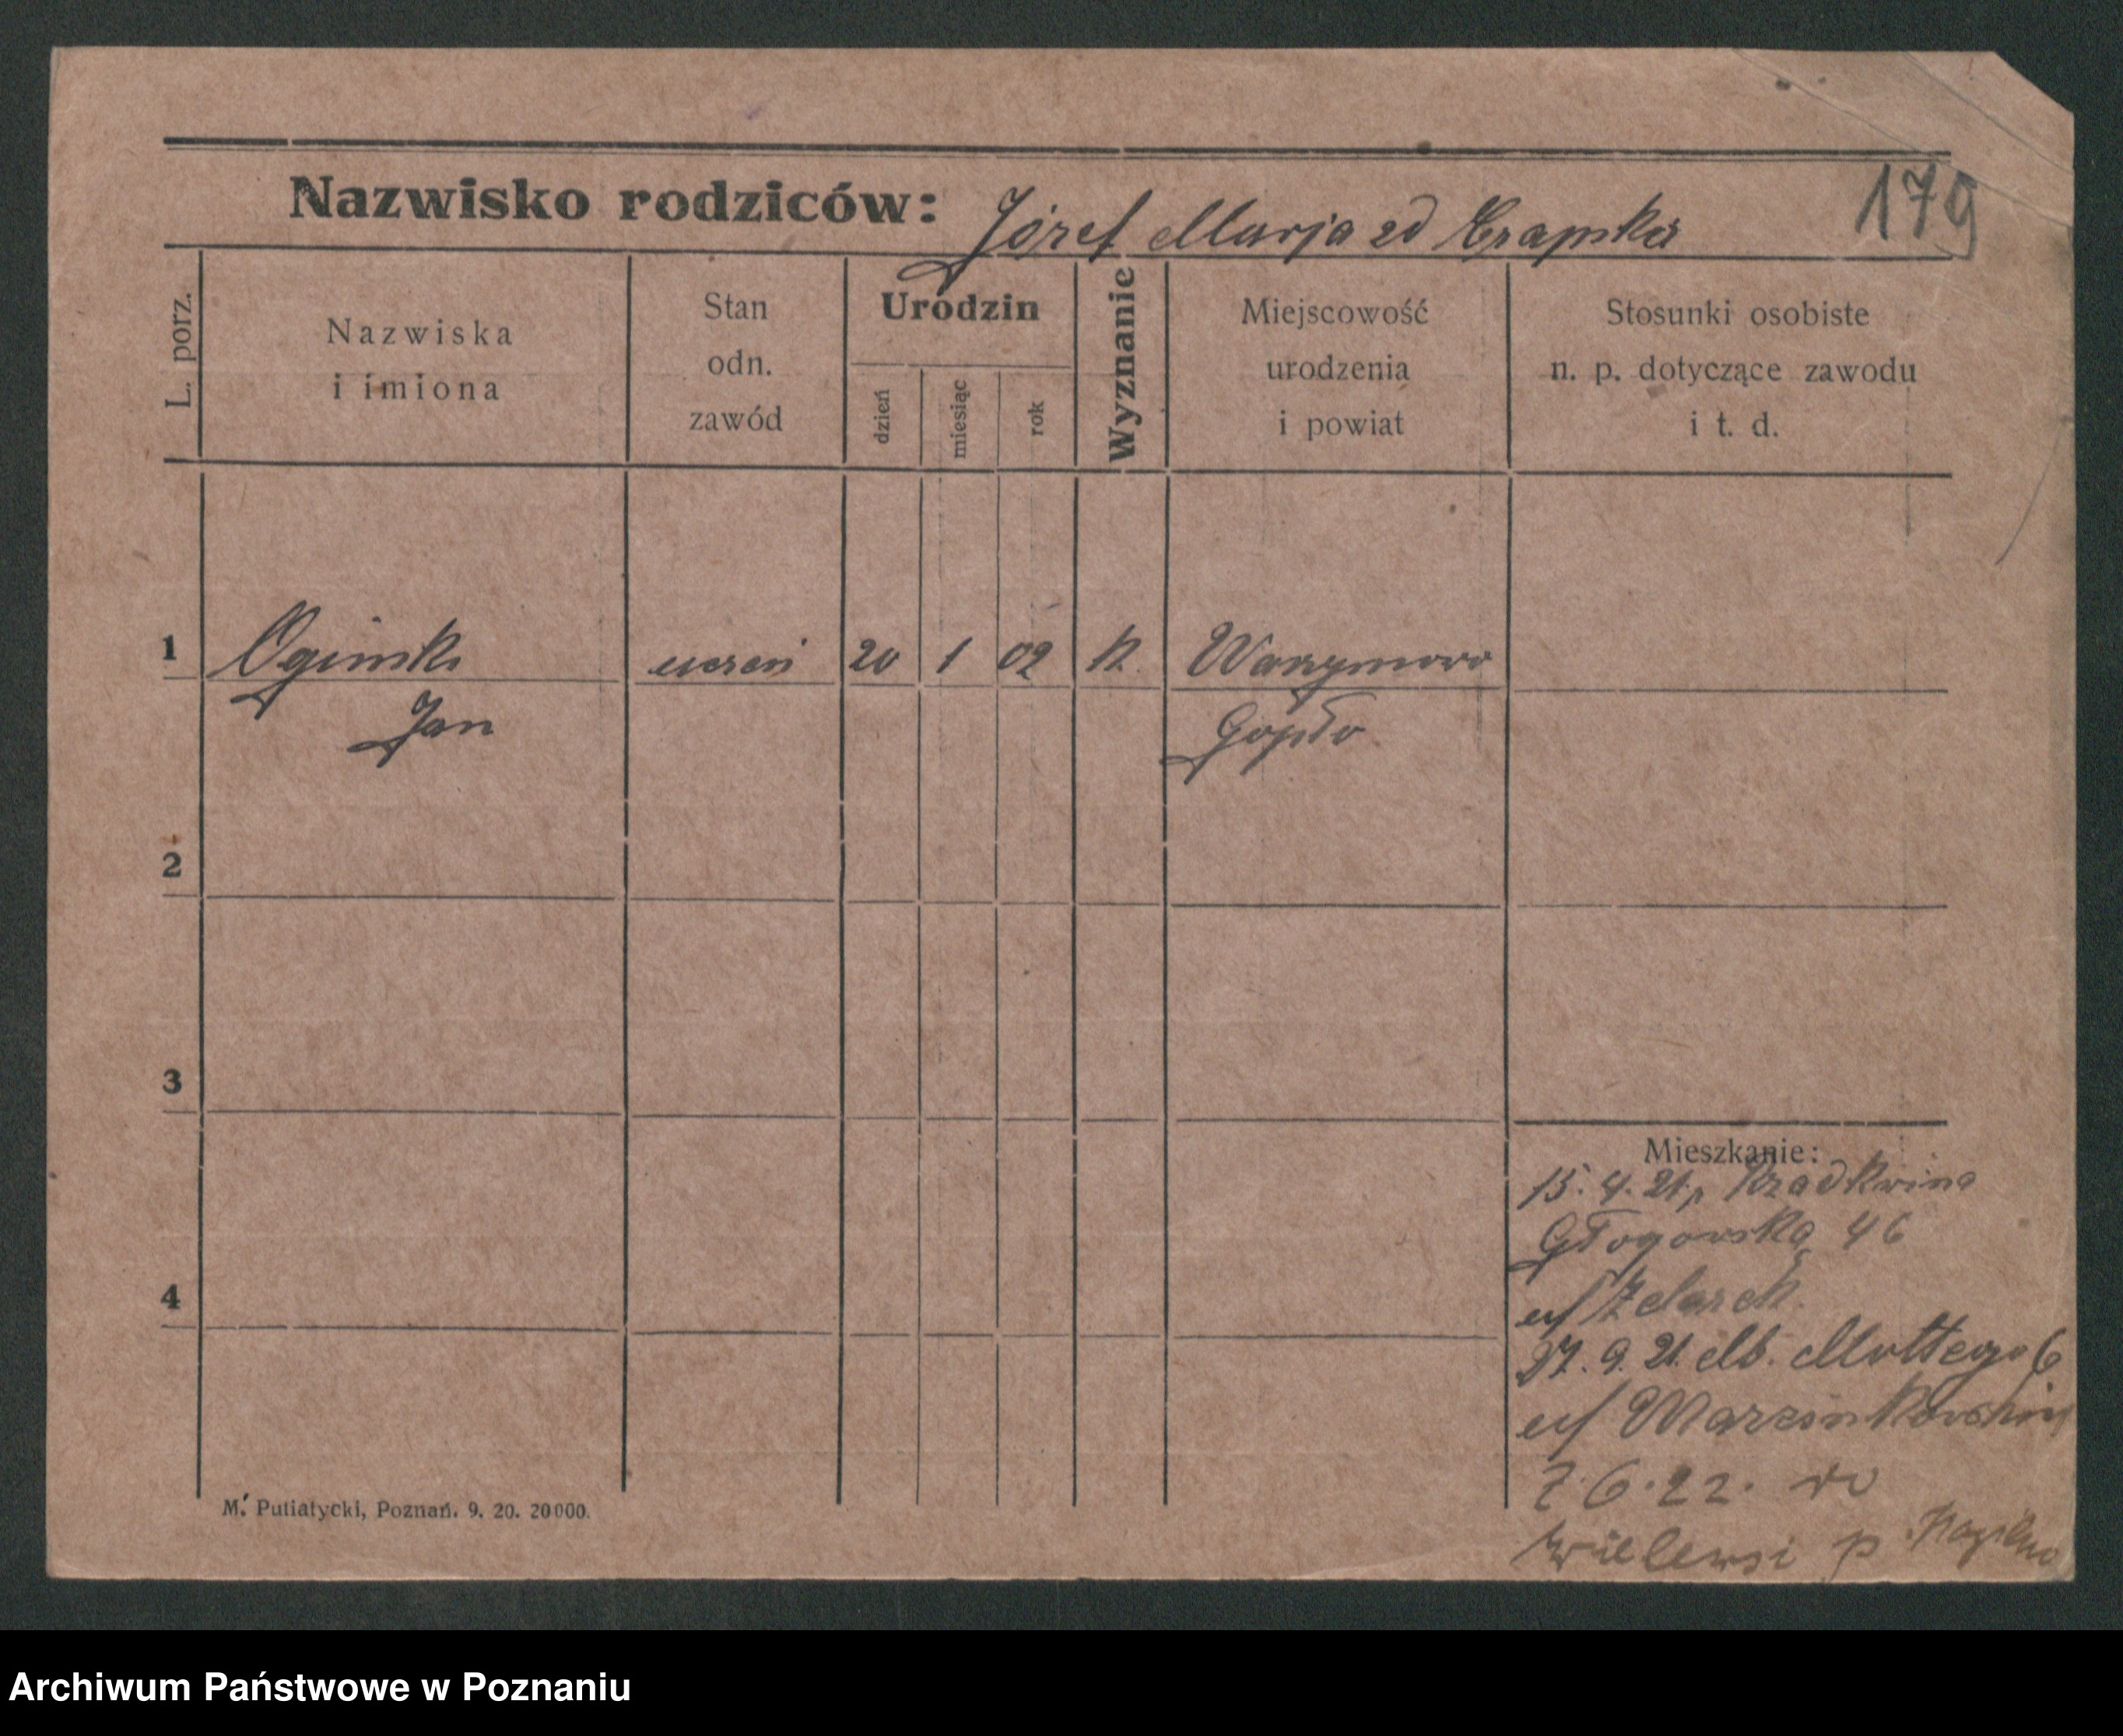 179
Nazwisko rodziców: Józef Marja zd Czapska
L. porz.
Nazwiska
i imiona
Stan
odn.
zawód
Urodzin
dzień
miesiąc
rok
Wyznanie
Miejscowość
urodzenia
i powiat
Stosunki osobiste
n. p. dotyczące zawodu
i t. d.
1 Ogiński uczeń 20 1 02 K. Warzymowo
Jan Gopło
2
3
4
Mieszkanie:
15. 4. 21. p
Głogowska 46
u/ Żelazek
27. 9. 21. Mb. Mottego 6
u/ Marcinkowskim
7.6.22. do
p
M. Putiatycki, Poznań. 9. 20. 20000.
Archiwum Państwowe w Poznaniu